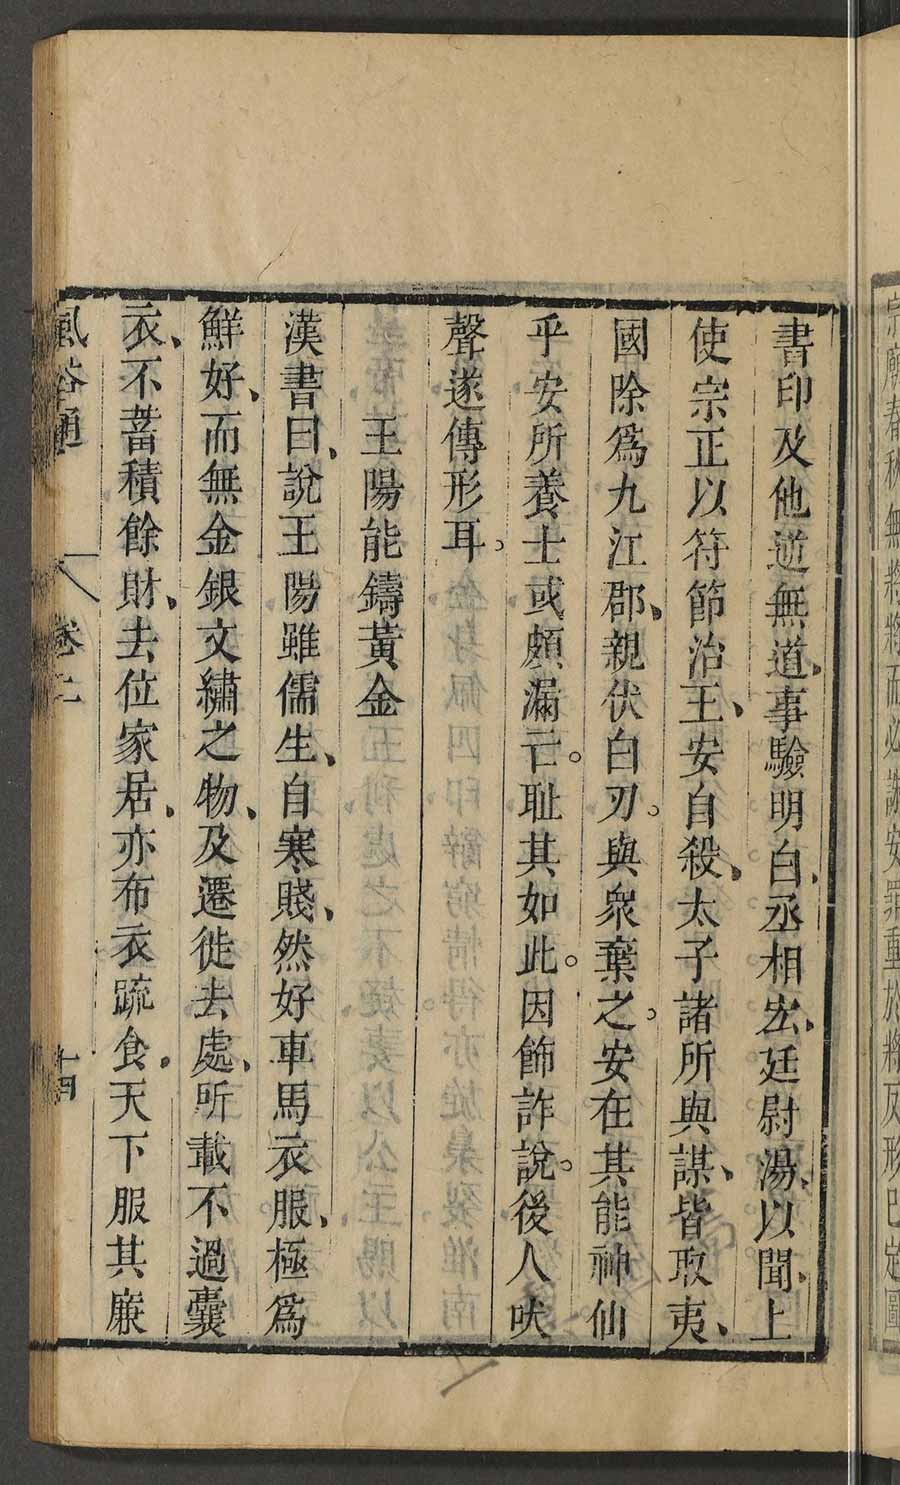 宗廟春秋無將將而必誅安罪重於將反形已定圖
書印及他逆無道、事驗明白、丞相宏、廷尉湯、以聞、上
使宗正以符節治王、安自殺、太子諸所與謀、皆取夷、
國除爲九江郡、親伏白刃。與衆棄之。安在其能神仙
乎安所養士或頗漏亡。耻其如此。因飾詐說。後人吠
聲遂傳形耳。
王陽能鑄黃金
漢書曰、說王陽雖儒生、自寒賤、然好車馬衣服、極爲
鮮好、而無金銀文繡之物、及遷徙去處、所載不過囊
衣、不蓄積餘財、去位家居、亦布衣蔬食、天下服其廉
風俗通 卷二 十四